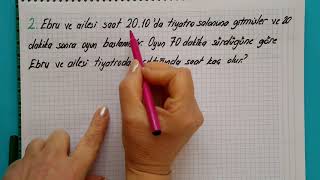 2. Ebru ve ailesi saat 20.10'da tiyatro salonuna gitmişler ve 20
dakika sonra oyun başlamıştır. Oyun 70 dakika sürdüğüne göre
Ebru ve ailesi tiyatroda saat kaç olur?